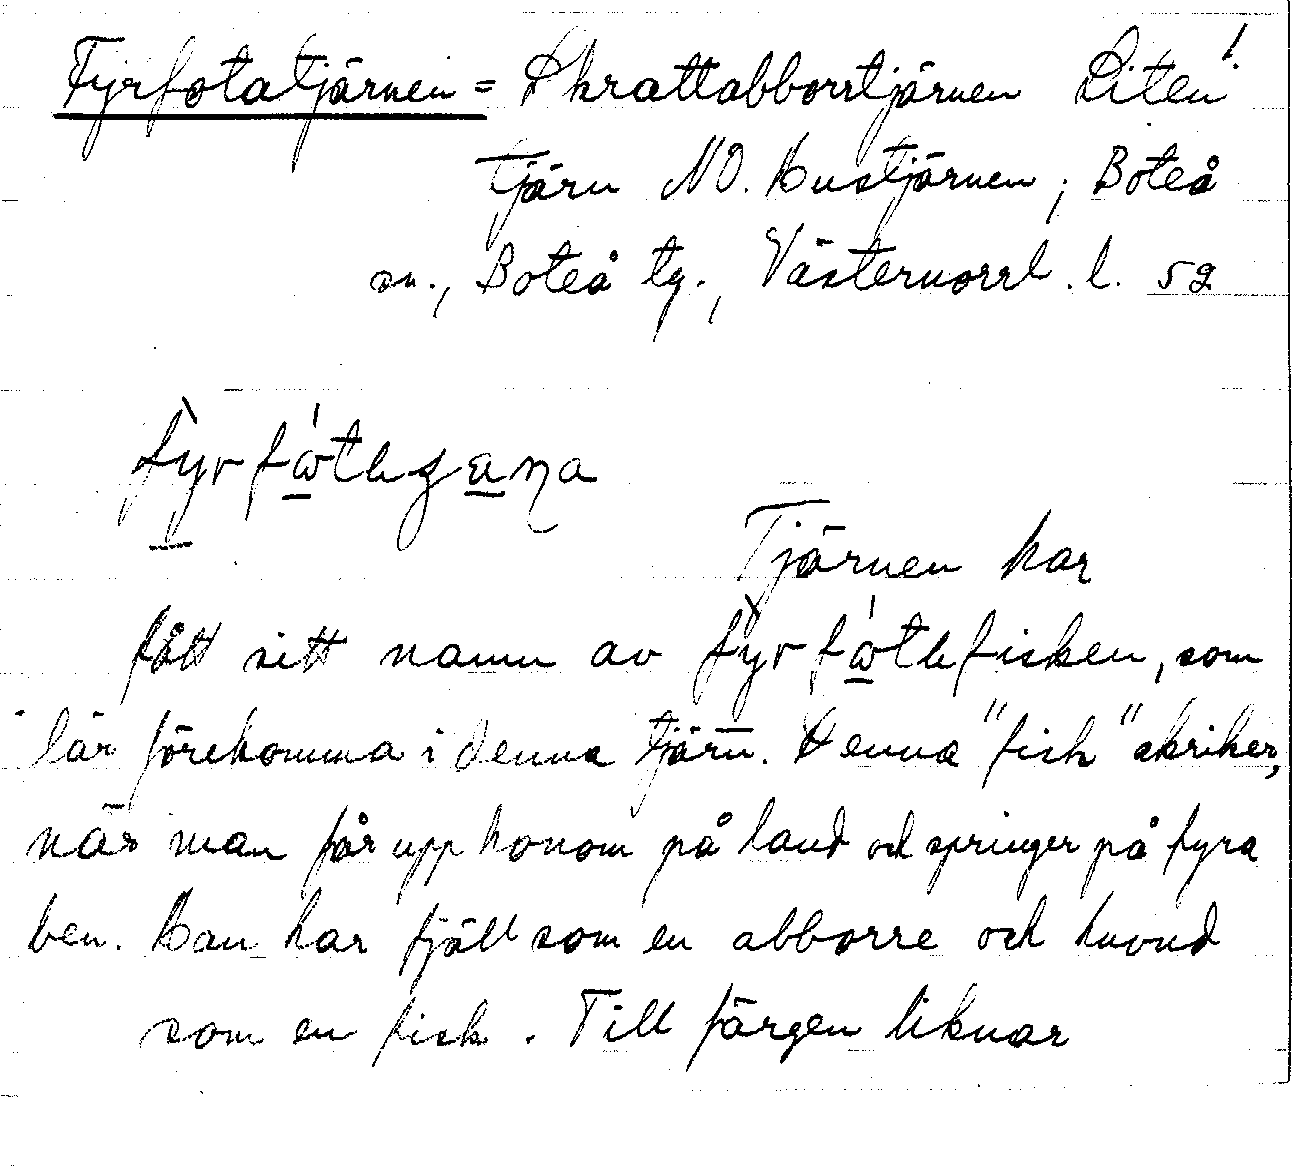 Fyrfotatjärnen = Skrattabborrtjärnen Liten 1.
tjärn NO. Hustjärnen, Boteå
sn., Boteå tg., Västernorrl. l. 52
Tjärnen har
fått sitt namn av fyrfotefisken, som
lär förekomma i denna tjärn. Denna "fisk" skriker,
när man får upp honom på land och springer på fyra
ben. Han har fjäll som en abborre och huvud
som en fisk. Till färgen liknar